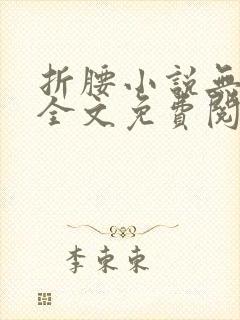 折腰小説無
全文免費閱
李束束